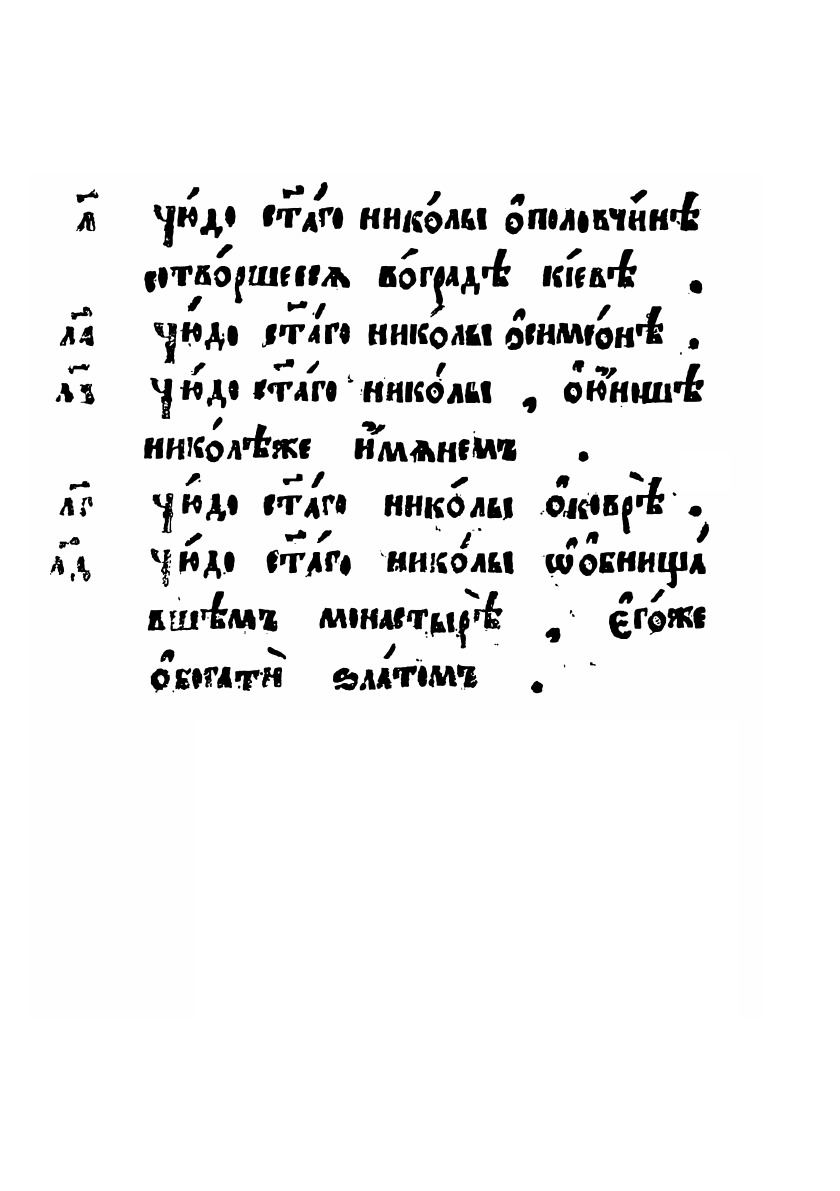 л҃ чю́до ст҃а́го нико́лы о҆половчи́нѣ
сотво́ршееся во́градѣ кі́евѣ .
л҃а чю́до ст҃а́го нико́лы о҆симео́нѣ .
л҃в чю́до ст҃а́го нико́лы , о҆ю҆́ншѣ
нико́лѣже и҆́мѧнемъ .
л҃г чю́до ст҃а́го нико́лы о҆коврѣ̀ .
л҃д чю́до ст҃а́го нико́лы ѡ҆о҆бнища́
вшѣмъ монастырѣ̀ , є҆го́же
о҆богатѝ ѕла́томъ .